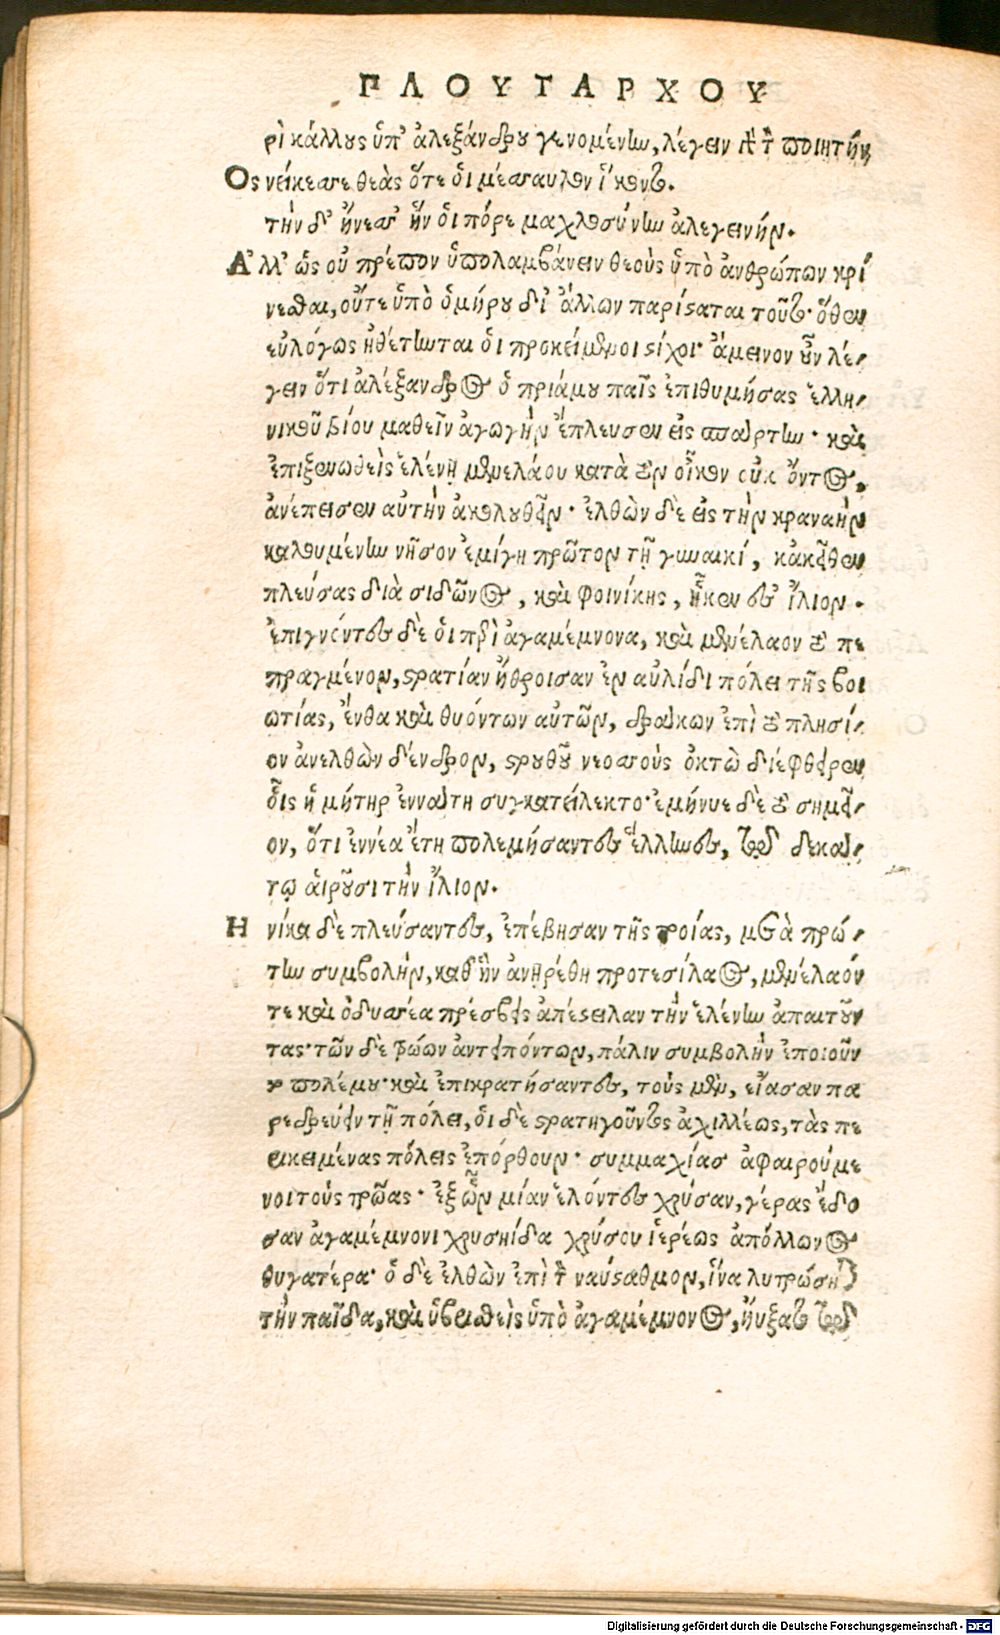 ΠΛΟΥΤΑΡΧΟΥ
ρὶ κάλλους ὑπ' ἀλεξάνδρου γενομένην, λέγειν τὸν ποιητήν,
Ος νείκεσσε θεὰς ὅτε ὁι μέσσαυλον ἵκοντο.
τὴν δ' ᾔνεσσ' ἥν ὁι πόρε μαχλοσύνην ἀλεγεινήν.
Αλλ' ὡς οὐ πρέπον ὑπολαμβάνειν θεοὺς ὑπὸ ἀνθρώπων κρί
νεσθαι, οὔτε ὑπὸ ὁμήρου δι' ἄλλων παρίσταται τοῦτο· ὅθεν
εὐλόγως ἠθέτηνται ὁι προκείμενοι στίχοι· ἄμεινον οὖν λέ-
γειν ὅτι ἀλέξανδρος ὁ πριάμου παῖς ἐπιθυμήσας ἑλλη-
νικοῦ βίου μαθεῖν ἀγωγὴν ἔπλευσεν εἰς σπάρτην· καὶ
ἐπιξενωθεὶς ἑλένῃ μενελάου κατὰ τὸν οἶκον οὐκ ὄντος,
ἀνέπεισεν αὐτὴν ἀκολουθεῖν· ἐλθὼν δὲ εἰς τὴν κραναὴν
καλουμένην νῆσον ἐμίγη πρῶτον τῇ γυναικί, κἀκεῖθεν
πλεύσας διὰ σιδῶνος, καὶ φοινίκης, ἧκεν ἐς ἴλιον.
ἐπιγνόντες δὲ ὁι περὶ ἀγαμέμνονα, καὶ μενέλαον τὸ πε
πραγμένον, στρατίαν ἤθροισαν ἐν αὐλίδι πόλει τῆς βοι
ωτίας, ἔνθα καὶ θυόντων αὐτῶν, δράκων ἐπὶ τὸ πλησί-
ον ἀνελθὼν δένδρον, στρουθοῦ νεοσσοὺς ὀκτὼ διέφθειρεν,
οἷς ἡ μήτηρ ἐννάτη συγκατείλεκτο· ἐμήνυε δὲ τὸ σημεῖ-
ον, ὅτι ἐννέα ἔτη πολεμήσαντες ἕλληνες, τῷ δεκά-
τῳ ἁιροῦσι τὴν ἴλιον.
Η νίκα δὲ πλεύσαντες, ἐπέβησαν τῆς τροίας, μετὰ πρώ-
την συμβολὴν, καθ' ἣν ἀνῃρέθη προτεσίλαος, μενέλαόν
τε καὶ ὀδυσσέα πρέσβεις ἀπέστειλαν τὴν ἑλένην ἀπαιτοῦν
τας· τῶν δὲ τρώων ἀντειπόντων, πάλιν συμβολὴν ἐποιοῦν
το πολέμου· καὶ ἐπικρατήσαντες, τοὺς μὲν, εἴασαν πα
ρεδρεύειν τῇ πόλει, ὁι δὲ στρατηγοῦντος ἀχιλλέως, τὰς πε
ρικειμένας πόλεις ἐπόρθουν· συμμαχίας ἀφαιρούμε
νοι τοὺς τρῶας· ἐξ ὧν μίαν ἑλόντες χρύσαν, γέρας ἔδο
σαν ἀγαμέμνονι χρυσηίδα χρύσου ἱερέως ἀπόλλωνος
θυγατέρα· ὁ δὲ ἐλθὼν ἐπὶ τὸν ναύσταθμον, ἵνα λυτρώσηται
τὴν παῖδα, καὶ ὑβρισθεὶς ὑπὸ ἀγαμέμνονος, ηὔξατο τῷ